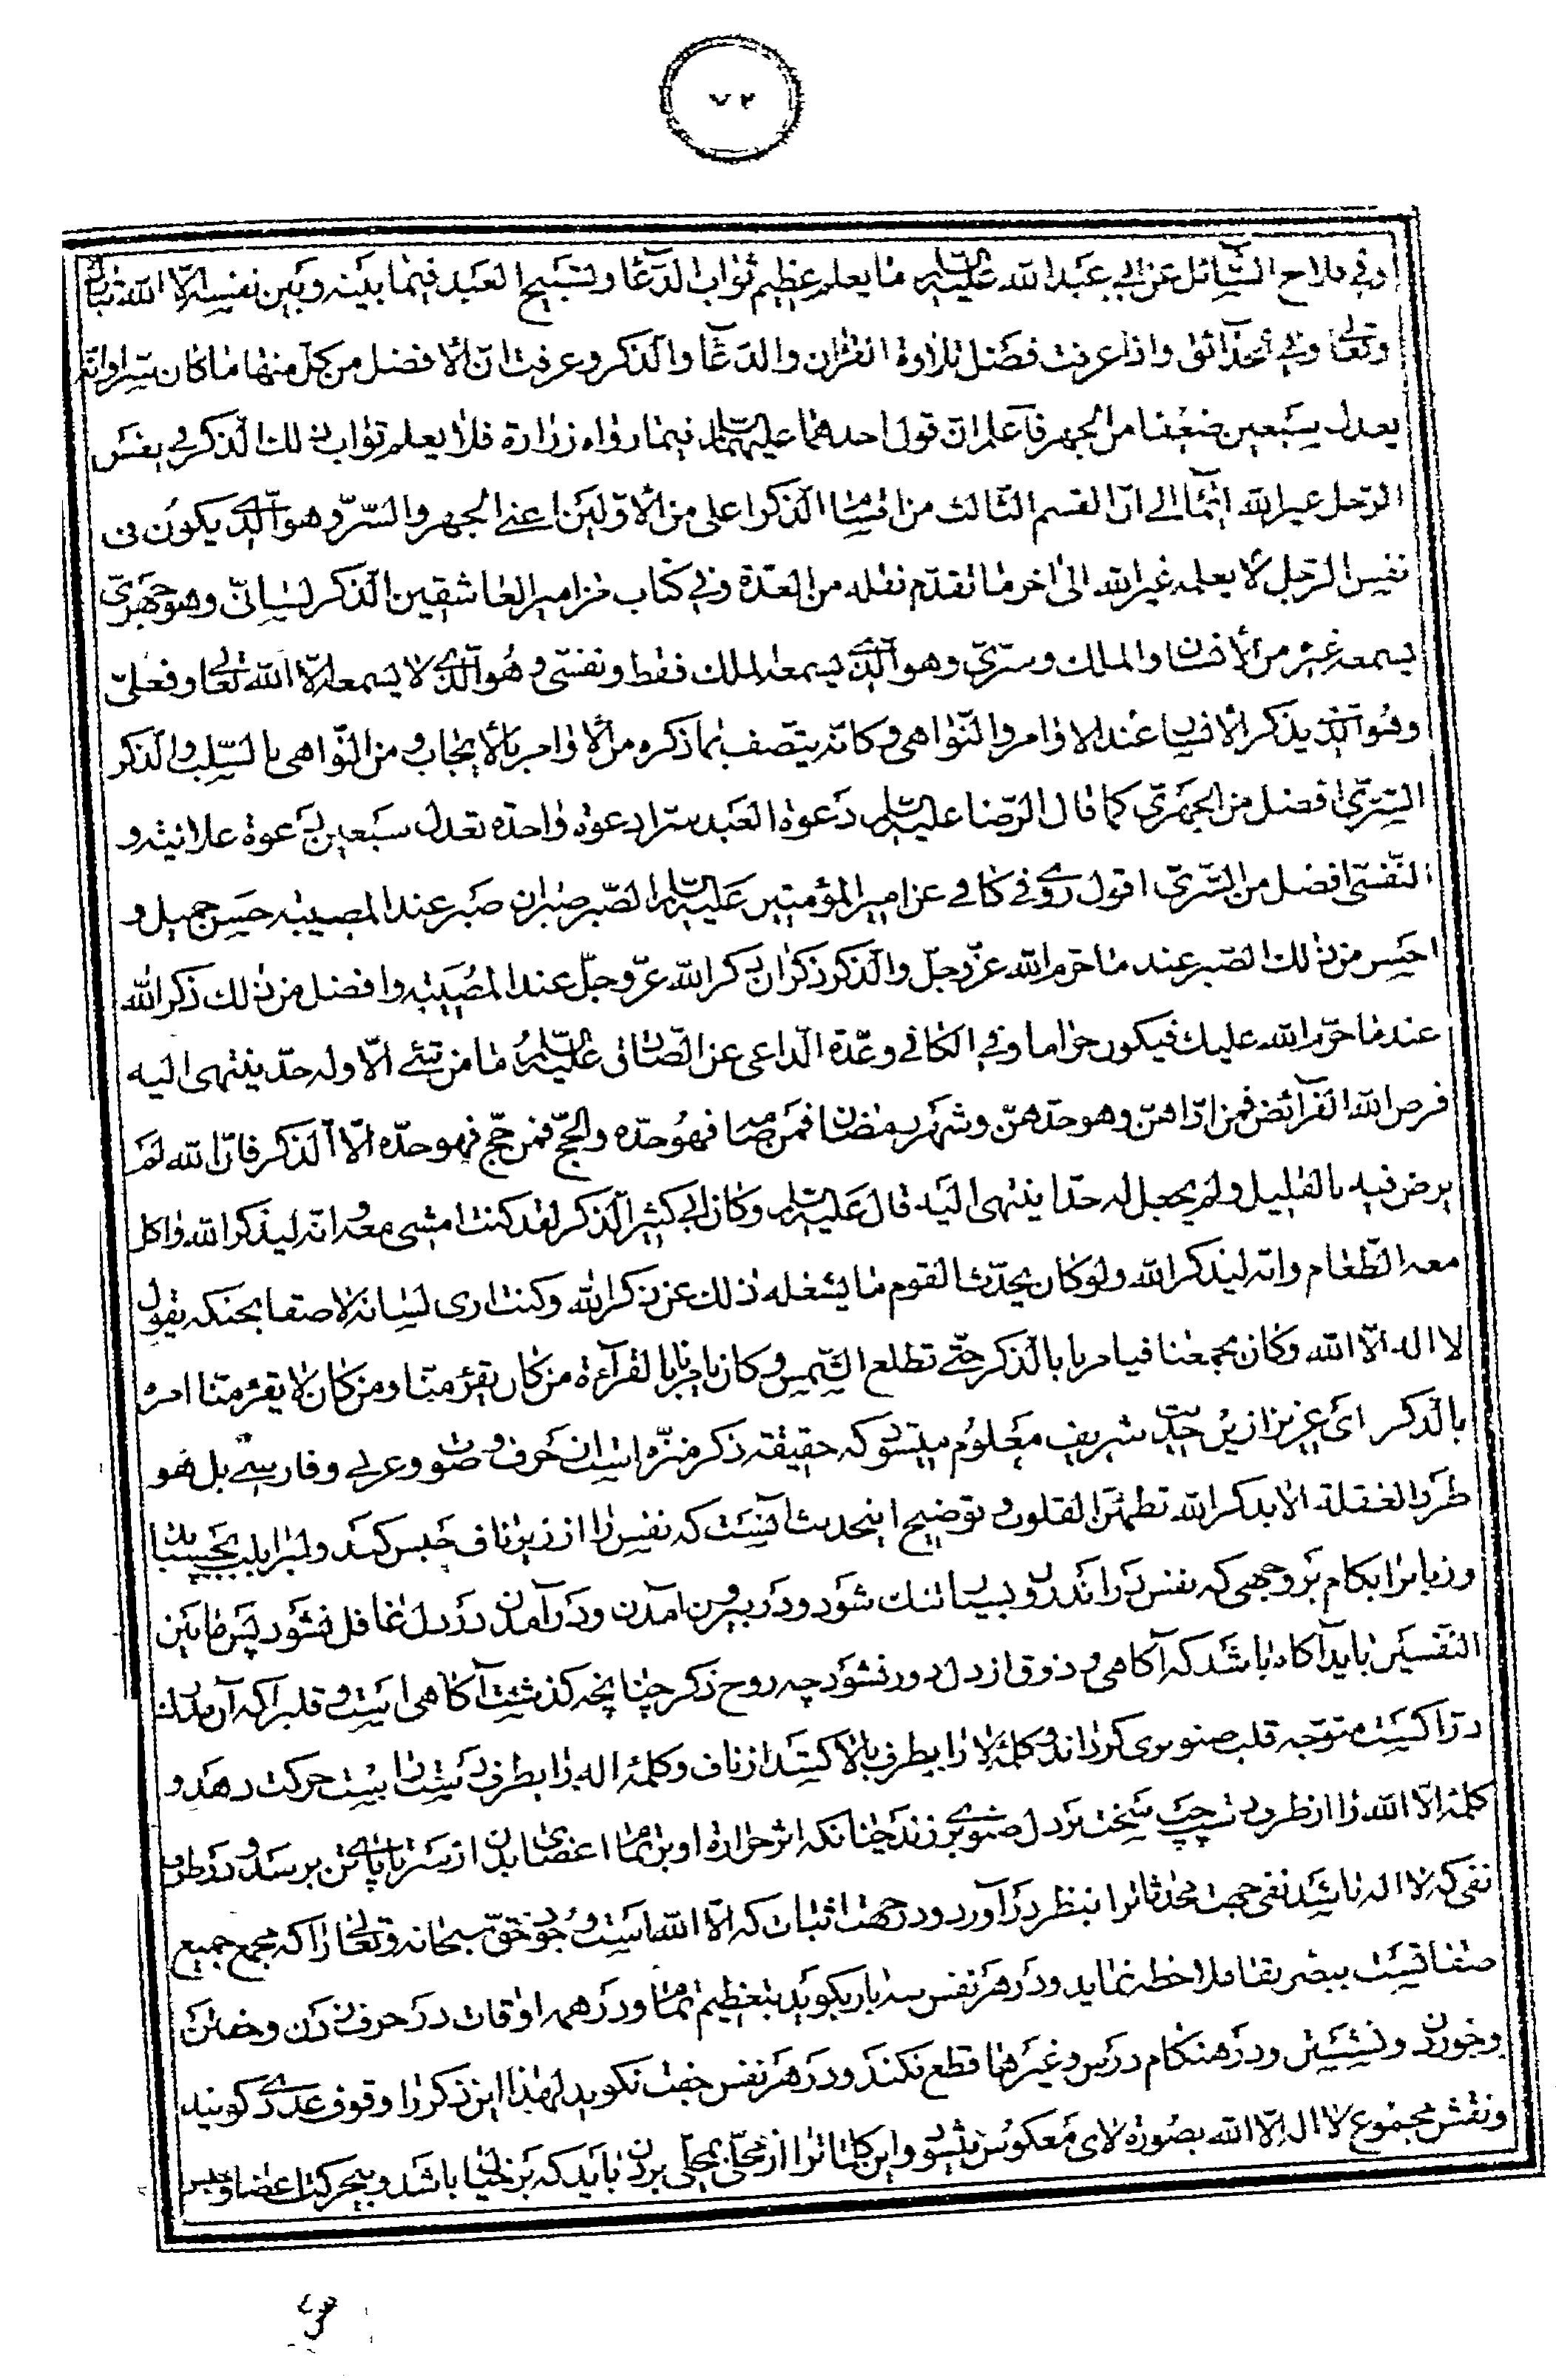 ٧٢
وفي فلاح السّائل عن ابي عبد الله عليه السلام ما يعلم عظيم ثواب الدّعا وتسبيح العبد فيما بينه وبين نفسه الّا الله تبارك
وتعالى وفي الحدائق واذا عرفت فضل تلاوة القران والدعآء والذكر وعرفت انّ الافضل من كل منها ما كان سرا وانّه
يعدل سبعين ضعفا من الجهر فاعلم انّ قول احدهما عليهما السلام فيما رواه زرارة فلا يعلم ثواب ذلك الذكر في نفس
الرّجل غير الله ايمآء الى انّ القسم الثالث من اقسام الذكر اعلى من الاوّلين اعني الجهر والسّر وهو الّذي يكون في
نفس الرّجل لا يعلمه غير الله الى اخر ما تقدّم نقله من العدّة وفي كتاب مزامير العاشقين الذكر لسانيّ وهو جهريّ
يسمعه غيره من الانسان والملك وسرّيّ وهو الّذي يسمعه الملك فقط ونفسّي وهو الّذي لا يسمعه الّا الله تعالى وفعليّ
وهو الّذي يذكر الانسان عند الاوامر والنّواهي وكانه يتّصف بما ذكره من الاوامر بالايجاب ومن النّواهي بالسّلب والذكر
السّرّي افضل من الجهريّ كما قال الرّضا عليه السلام دعوة العبد سرّا دعوة واحدة تعدل سبعين دعوة علانيته و
النّفسّي افضل من السّرّي اقول روي في كافي عن امير المؤمنين عليه السلام الصّبر صبران صبر عند المصيبة حسن جميل و
احسن من ذلك الصّبر عند ما حرّم الله عزّ وجلّ والذكر ذكران ذكر الله عزّ وجلّ عند المصيبة وافضل من ذلك ذكر الله
عند ما حرّم الله عليك فيكون حراما وفي الكافي وعدّة الدّاعي عن الصّادق عليه السلام ما من شيء الّا وله حدّ ينتهي اليه
فرض الله الفرآئض فمن ادّاهنّ وهو حدّهنّ وشهر رمضان فمن صامه فهو حدّه والحجّ فمن حجّ فهو حدّه الّا الذكر فانّ الله لم
يرض فيه بالقليل ولم يجعل له حدا ينتهي اليه قال عليه السلام وكان ابي كثير الذكر لقد كنت امشي معه وانه ليذكر الله واكل
معه الطّعام وانّه ليذكر الله ولو كان يحدّث القوم ما يشغله ذلك عن ذكر الله وكنت ارى لسانه لاصقا بحنكه يقول
لا اله الّا الله وكان يجمعنا فيامرنا بالذكر حتّى تطلع الشّمس وكان يامرنا بالقرآءة من كان يقرء منّا ومن كان لا يقرء منّا امره
بالذكر اى عزيز ازين حديث شريف معلوم ميشود كه حقيقة ذكر منزّه است از حرف وصوت وعربي وفارسي بل هو
طرد الغفلة الا بذكر الله تطمئنّ القلوب وتوضيح اينحديث آنست كه نفس را از زير ناف حبس كند ولبرا بلب بچسباند
وزبانرا بكام بر وجهى كه نفس در اندرون بسيار تنك نشود ودر بيرون آمدن ودر آمدن در دل غافل نشود پس مابين
النّفسين بايد آگاه باشد كه آگاهى وذوق از دل دور نشود چه روح ذكر چنانچه گذشت آگاهى است وقلبرا كه آن مدرك
درّاكست متوجّه قلب صنوبرى گرداند وكلمۀ لا را بطرف بالا كشد از ناف وكلمۀ اله را بطرف دست راست حركت دهد و
كلمۀ الّا الله را از طرف دست چپ سخت بر دل صنوبرى زند چنانكه اثر حرارة او بتمام اعضاى بدن از سر تا پاى تن برسد ودر طرف
نفى كه لا اله باشد نفى جهت محدثاترا بنظر در آورد ودر جهت اثبات كه الّا الله است وجود حقّ سبحانه وتعالى را كه مجمع جميع
صفاتست ببصر بقا ملاحظه نمايد ودر هر نفس سه بار بگويد بتعظيم تمام ودر همه اوقات در حرف زدن وخفتن
وخوردن ونشستن ودر هنگام درس وغيرها قطع نكند ودر هر نفس جفت نگويد لهذا اين ذكر را وقوف عددى گويند
ونقش مجموع لا اله الّا الله بصورة لاى معكوس بشود واين كلماترا از محلّى بمحلّى بردن بايد كه بر خيال باشد وبيحركت اعضا